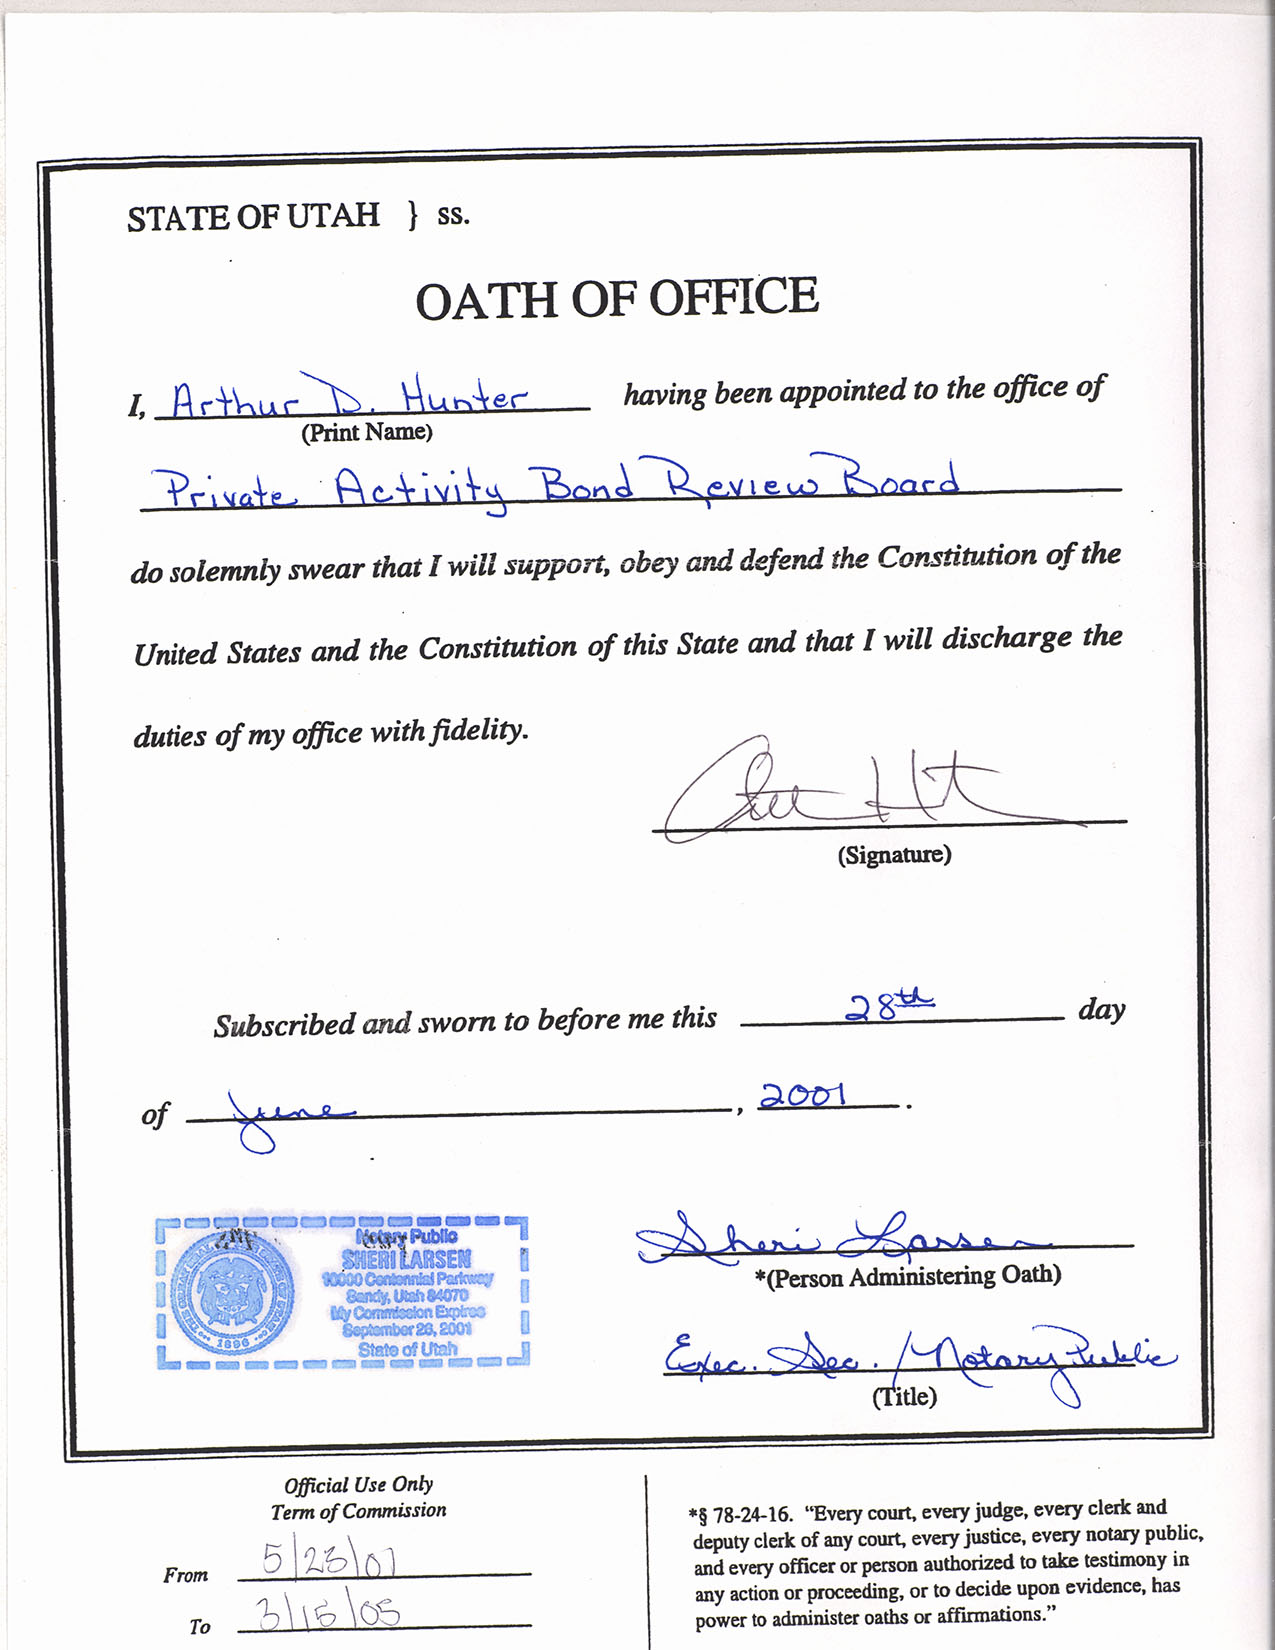 STATE OF UTAH } ss.
OATH OF OFFICE
I, Arthur D. Hunter having been appointed to the office of
(Print Name)
Private Activity Bond Review Board
do solemnly swear that I will support, obey and defend the Constitution of the
United States and the Constitution of this State and that I will discharge the
duties of my office with fidelity.
(Signature)
Subscribed and sworn to before me this 28th day
of June, 2001.
Notary Public
SHERI LARSEN
10000 Centennial Parkway
Sandy, Utah 84070
My Commission Expires
September 28, 2001
State of Utah
1896
Sheri Larsen
*(Person Administering Oath)
Exec. Sec. / Notary Public
(Title)
Official Use Only
Term of Commission
From 5/23/01
To 3/15/05
*§ 78-24-16. “Every court, every judge, every clerk and
deputy clerk of any court, every justice, every notary public,
and every officer or person authorized to take testimony in
any action or proceeding, or to decide upon evidence, has
power to administer oaths or affirmations.”